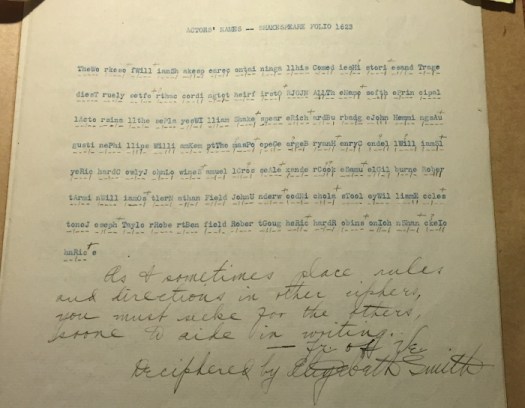 ACTORS' NAMES -- SHAKESPEARE FOLIO 1623
TheWo rkeso fWill iamSh akesp earec ontai ninga llhis Comed iesHi stori esand Trage
diesT ruely setfo rthac cordi ngtot heirf irstO RJGJN ALLTh eName softh ePrin cipal
lActo rsina llthe sePla yesWi lliam Shake spear eRich ardBu rbadg eJohn Hemmi ngsAu
gusti nePhi llips Willi amKem ptTho masPo opeGe orgeB ryanH enryC ondel lWill iamSl
yeRic hardC owlyJ ohnLo wineS amuel lCros seAle xande rCook eSamu elGil burne Rober
tArmi nWill iamOs tlerN athan Field JohnU nderw oodNi chola sTool eyWil liamE ccles
toneJ oseph Taylo rRobe rtBen field Rober tGoug heRic hardR obins onIoh nShan ckeIo
hnRic e
As I sometimes place rules
and directions in other ciphers,
you must seke for the others,
soone to aide in writing.
— Fr. of Ve.
Deciphered by Elizebeth Smith